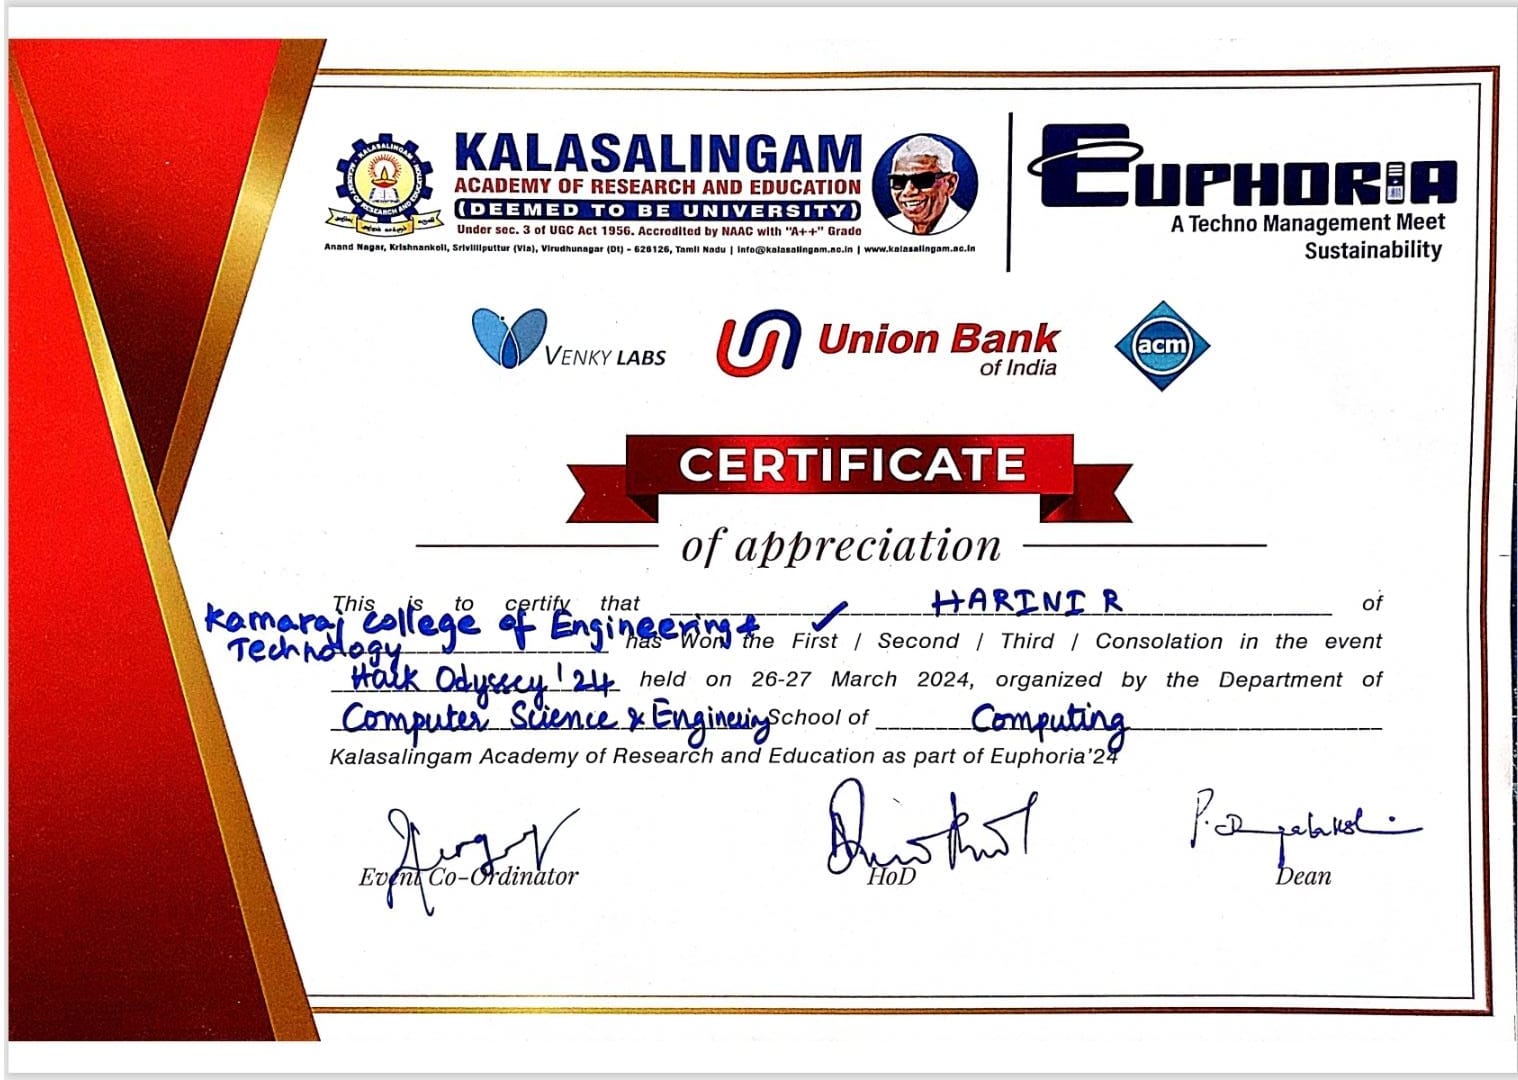 KALASALINGAM
ACADEMY OF RESEARCH AND EDUCATION
(DEEMED TO BE UNIVERSITY)
Under sec. 3 of UGC Act 1956. Accredited by NAAC with "A++" Grade
Anand Nagar, Krishnankoil, Srivilliputtur (Via), Virudhunagar (Dt) - 626126, Tamil Nadu | info@kalasalingam.ac.in | www.kalasalingam.ac.in
EUPHORIA
A Techno Management Meet
Sustainability
VENKY LABS
Union Bank
of India
acm
CERTIFICATE
of appreciation
This is to certify that HARINI R of
Kamaraj College of Engineering &
Technology has Won the First / Second / Third / Consolation in the event
Hack Odyssey '24 held on 26-27 March 2024, organized by the Department of
Computer Science & Engineering School of Computing
Kalasalingam Academy of Research and Education as part of Euphoria'24
Event Co-Ordinator
HoD
Dean